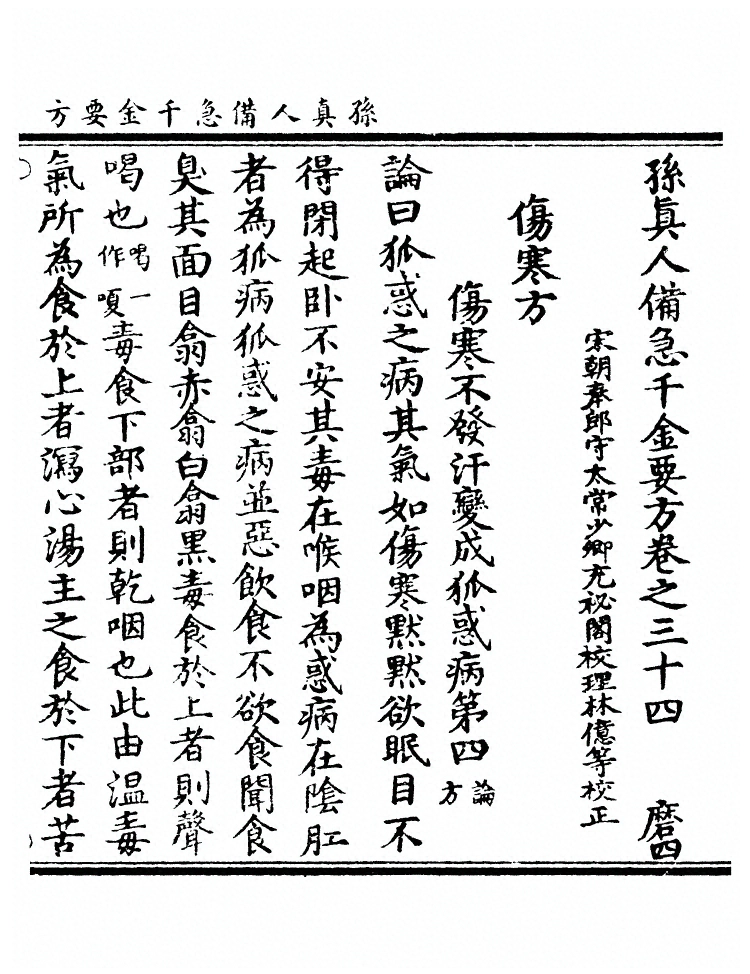 孫真人備急千金要方
孫真人備急千金要方卷之三十四　磨四
宋朝奉郎守太常少卿充祕閣校理林億等校正
傷寒方
傷寒不發汗變成狐惑病第四論方
論曰狐惑之病其氣如傷寒默默欲眠目不
得閉起卧不安其毒在喉咽為惑病在陰肛
者為狐病狐惑之病並惡飲食不欲食聞食
臭其面目翕赤翕白翕黑毒食於上者則聲
喝也喝一作嗄毒食下部者則乾咽也此由温毒
氣所為食於上者瀉心湯主之食於下者苦